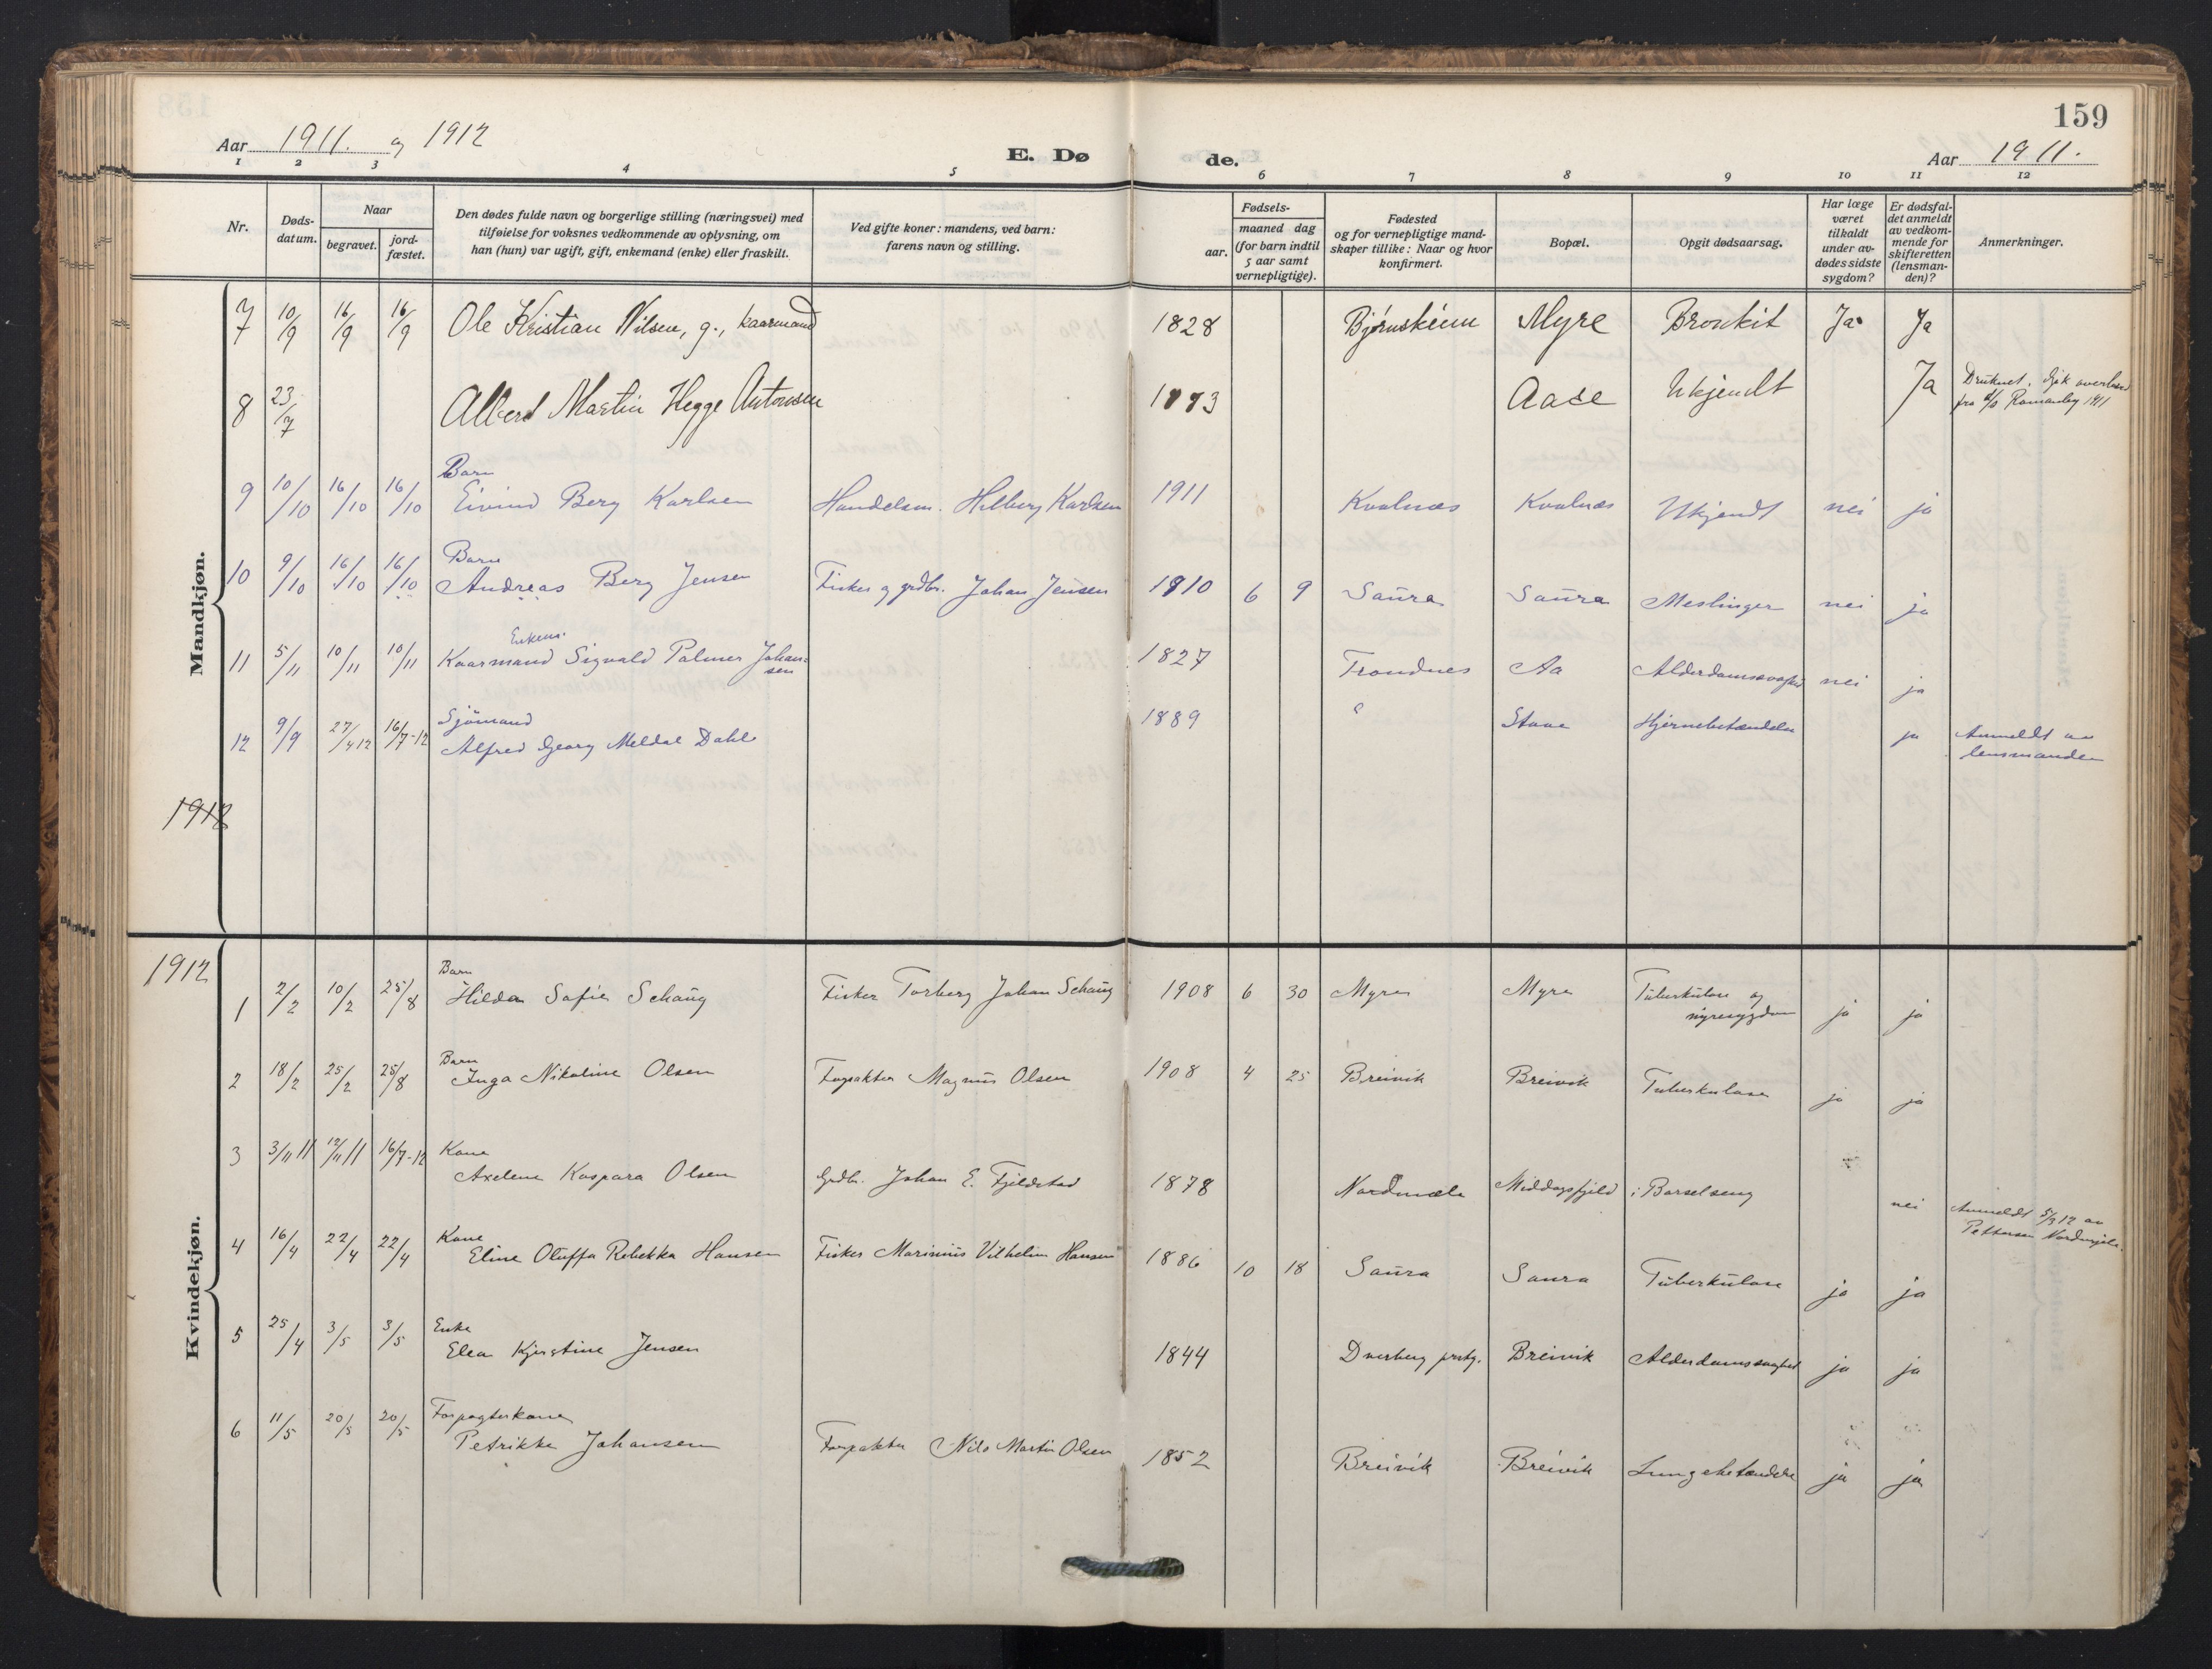 159
Aar 1911. og 1912
E. Dø
de.
Aar 1911.
1 2 3 4 5 6 7 8 9 10 11 12
Nr.
Døds-
datum.
Naar
begravet.
jord-
fæstet.
Den dødes fulde navn og borgerlige stilling (næringsvei) med
tilføielse for voksnes vedkommende av oplysning, om
han (hun) var ugift, gift, enkemand (enke) eller fraskilt.
Ved gifte koner: mandens, ved barn:
farens navn og stilling.
Fødsels-
aar.
maaned dag
(for barn indtil
5 aar samt
vernepligtige).
Fødested
og for vernepligtige mand-
skaper tillike: Naar og hvor
konfirmert.
Bopæl.
Opgit dødsaarsag.
Har læge
været
tilkaldt
under av-
dødes sidste
sygdom?
Er dødsfal-
det anmeldt
av vedkom-
mende for
skifteretten
(lensman-
den)?
Anmerkninger.
Mandkjøn.
7 10/9 16/9 16/9 Ole Kristian Nilsen, g., kaarmand 1828 Bjørnskinn Myre Bronkit Ja Ja
8 23/7 Albert Martin Hegge Antonsen 1873 Aase Ukjendt Ja Druknet. Gik overbord
fra
1911
Barn
9 10/10 16/10 16/10 Eivind Berg Karlsen Handelsm. Hilberg Karlsen 1911 Kvalnæs Kvalnæs Ukjendt nei ja
Barn
10 9/10 16/10 16/10 Andreas Berg Jensen Fisker og grdbr. Johan Jensen 1910 6 9 Saura Saura Meslinger nei ja
Enkem.
11 5/11 10/11 10/11 Kaarmand Sigvald Palmer Johan-
sen 1827 Trondnes Aa Alderdomssvaghed nei ja
Sjömand
12 9/9 27/4 12 16/7-12 Alfred Georg Meldal Dahl 1889 " Stave Hjernebetændelse ja Anmeldt av
lensmanden
1912
Kvindekjøn.
1912
Barn
1 2/2 10/2 25/8 Hilda Sofie Schaug Fisker Torberg Johan Schaug 1908 6 30 Myre Myre Tuberkulose og
nyresygdom ja ja
Barn
2 18/2 25/2 25/8 Inga Nikoline Olsen Forpakter Magnus Olsen 1908 4 25 Breivik Breivik Tuberkulose ja ja
Kone
3 3/11 11 12/11 11 16/7-12 Axelene Kaspara Olsen Grdbr. Johan E. Fjeldstad 1878 Nordmæle Middagsfjeld i Barselseng nei Anmeldt 5/3 12 av
Pettersen Nordmjele.
Kone
4 16/4 22/4 22/4 Eline Oluffa Rebekka Hansen Fisker Marinius Vilhelm Hansen 1886 10 18 Saura Saura Tuberkulose ja ja
Enke
5 25/4 3/5 3/5 Elea Kjerstine Jensen 1844 Dverberg prstg. Breivik Alderdomssvaghed ja ja
Forpagterkone
6 11/5 20/5 20/5 Petrikke Johansen Forpakter Nils Martin Olsen 1852 Breivik Breivik Lungebetændelse ja ja